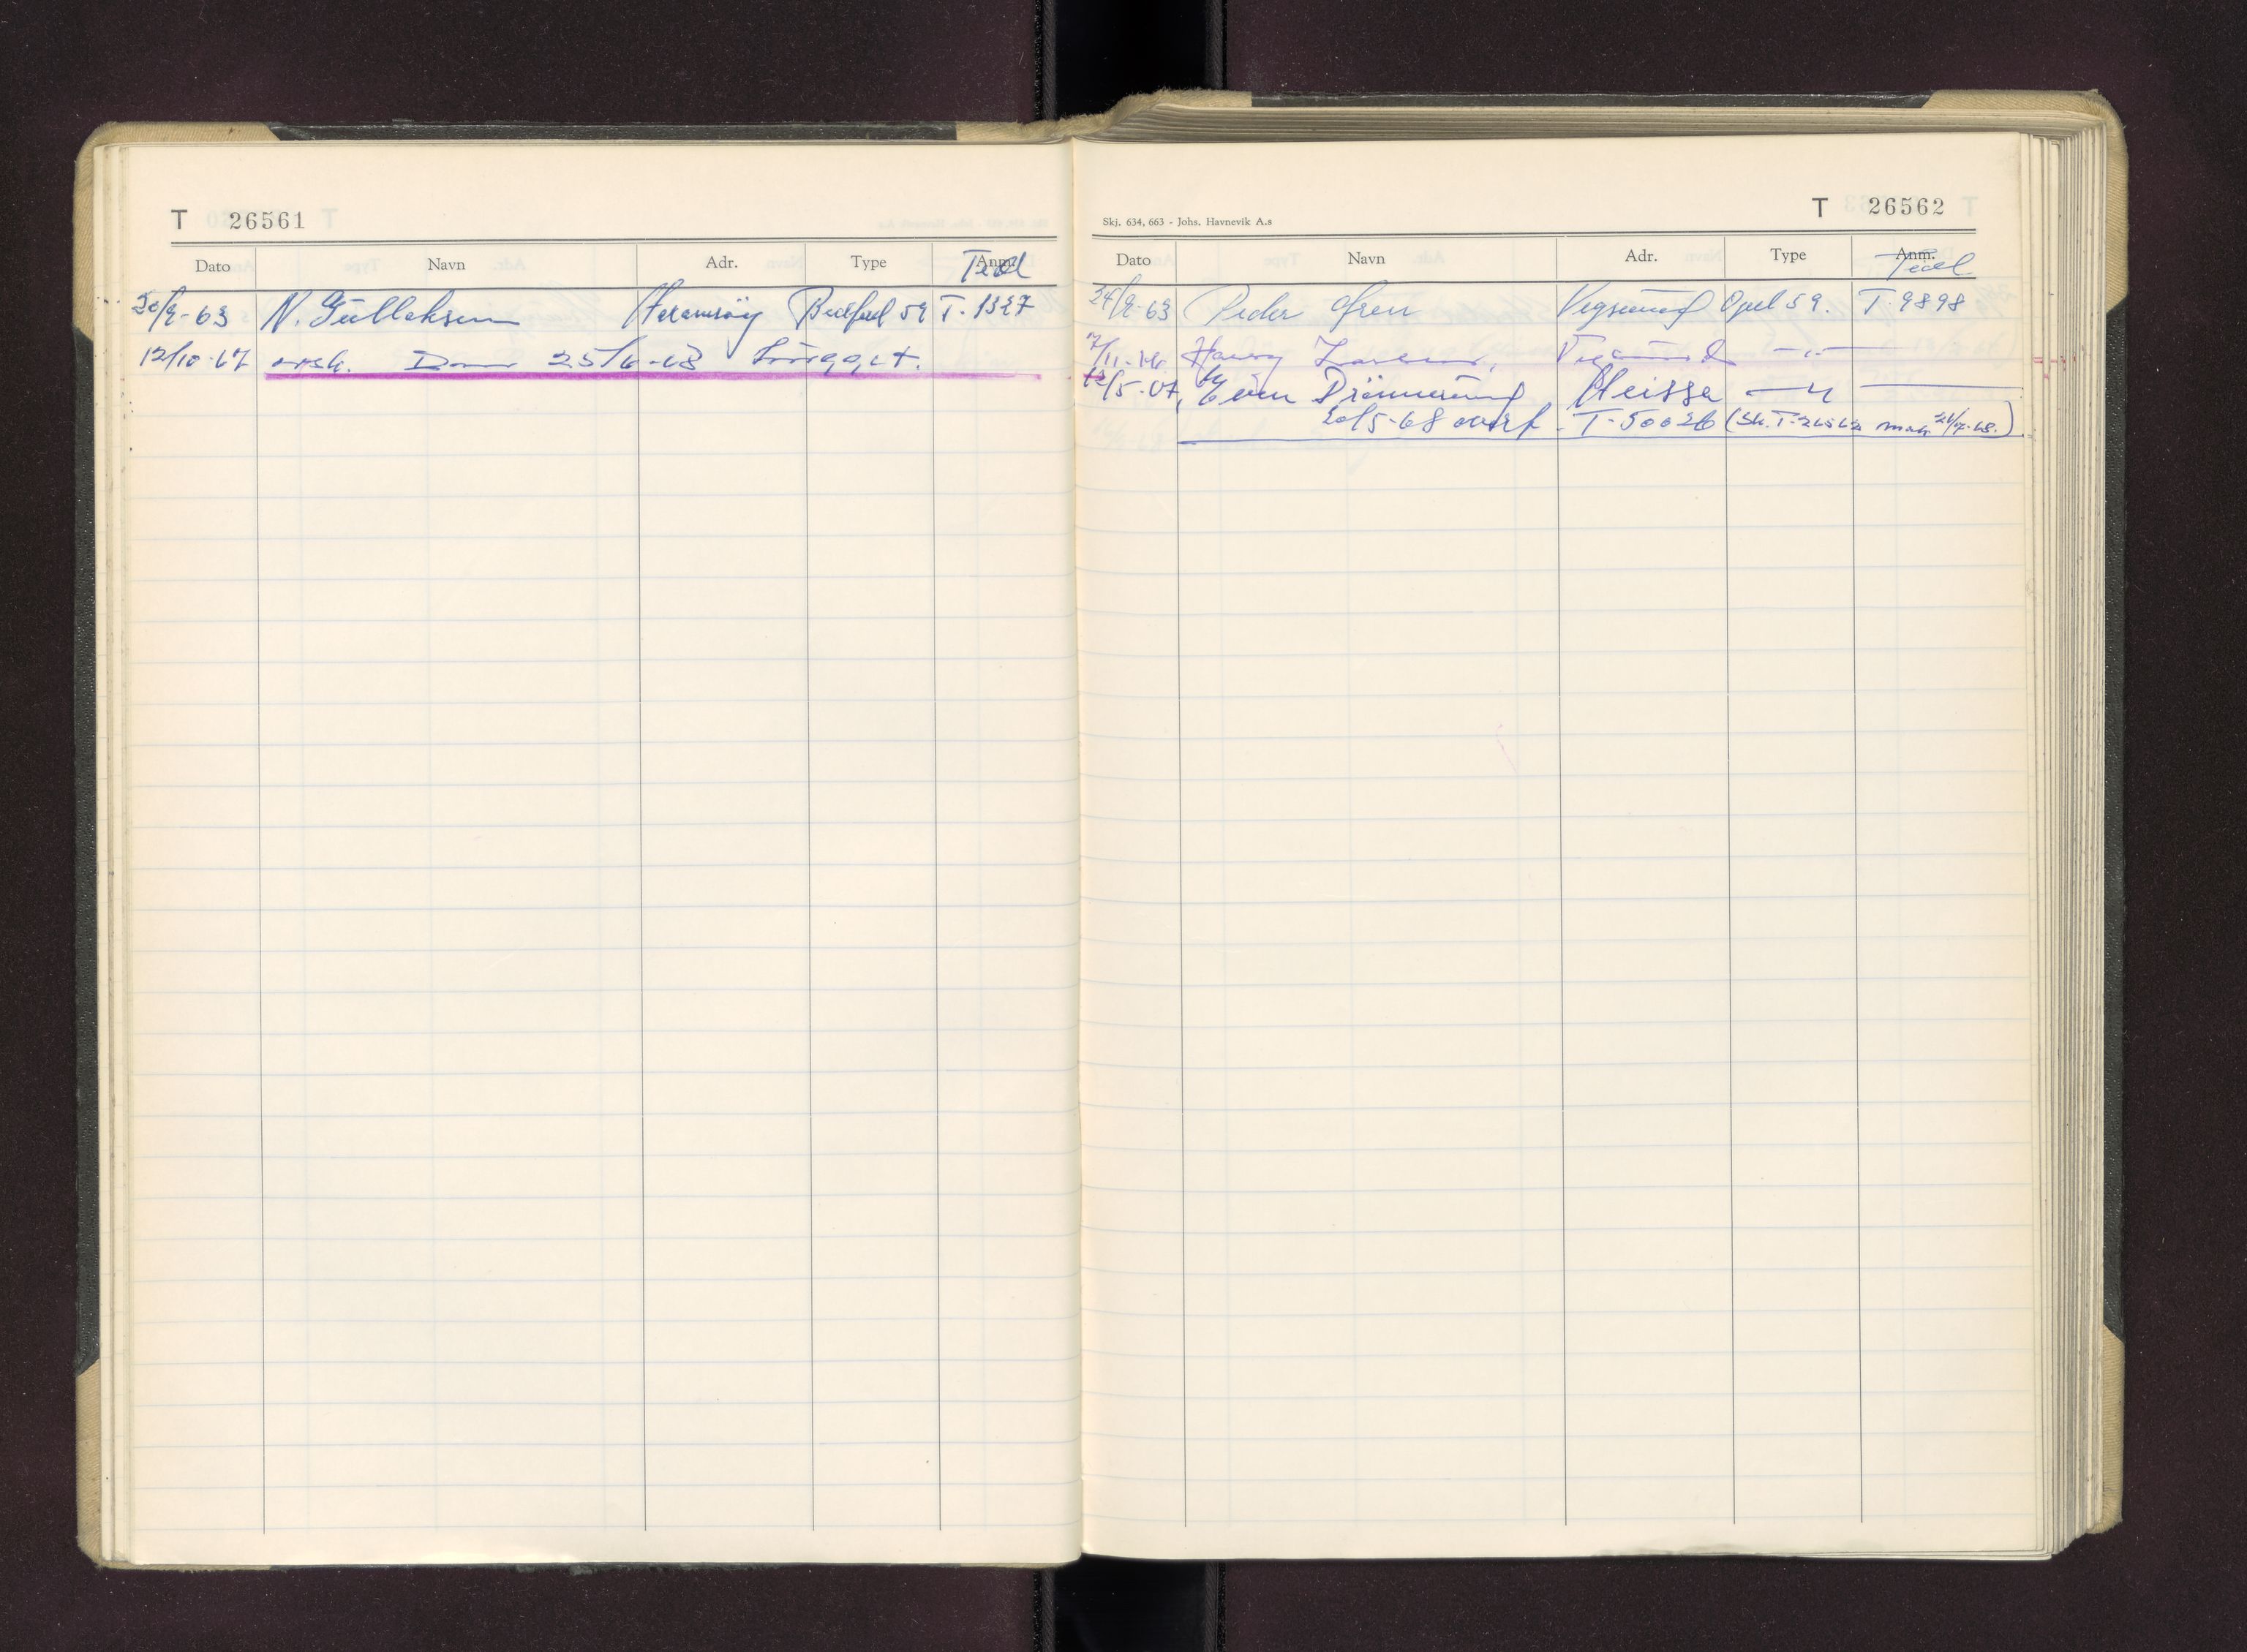 T 26561
Dato Navn Adr. Type Anm.
Tidl
20/9-63 N. Gulleksen Haramsöy Bedford 59 T-1327
12/10-67 avsk. 25/6-68
Skj. 634, 663 - Johs. Havnevik A.s
T 26562
Dato Navn Adr. Type Anm.
Tidl
24/9-63 Peder Vegsund Opel 59. T-9898
7/11-66 Harry Larsen, Vegsund -"-
12/5-67, Even Heissa -"-
20/5-68 overf. T-50026 (Sk. T-26562 mak 21/9-68.)